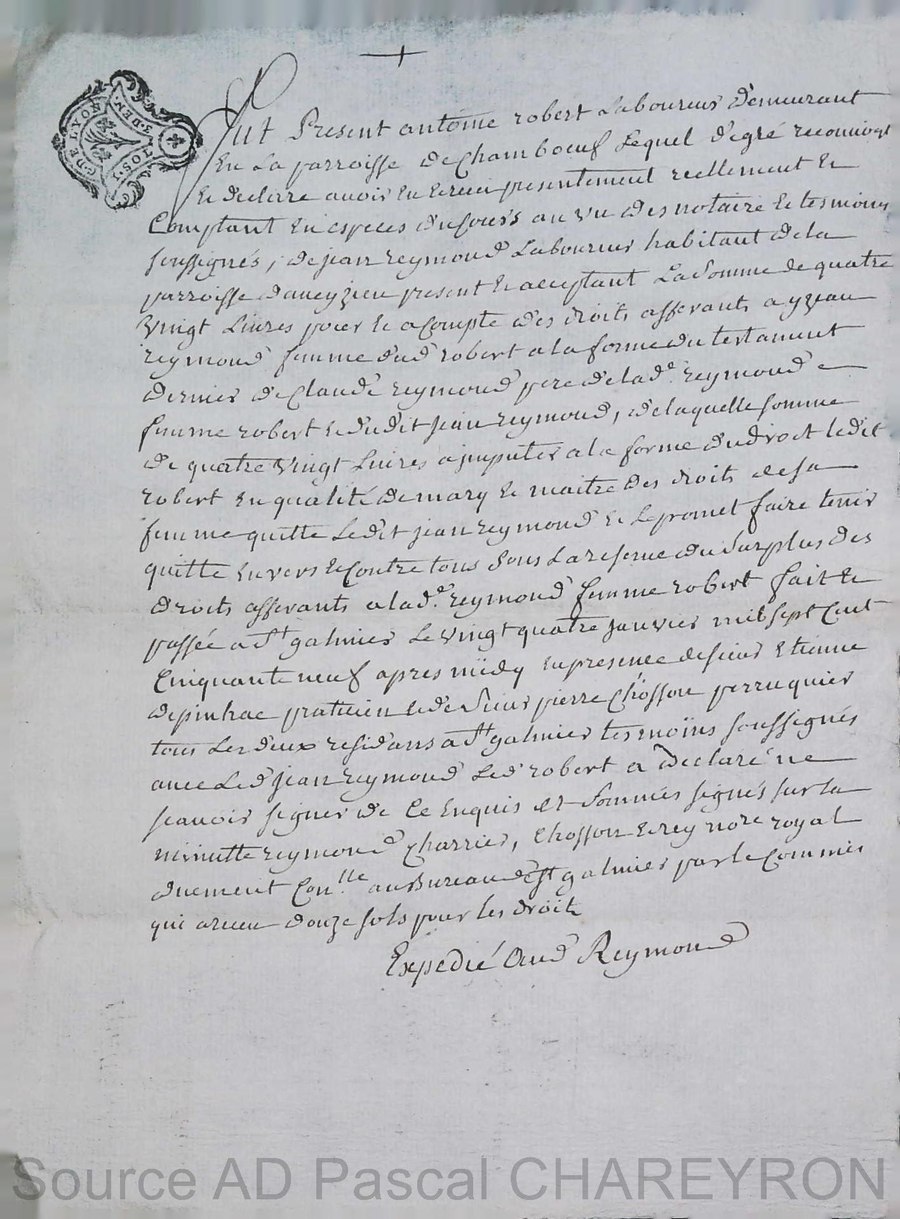 DE LYON
3.DEN
1.SOL
fut Present antoine robert Laboureur demeurant
En La parroisse de Chambœuf Lequel de gré reconnoit
Et declare avoir Eu Et receu presentement reellement Et
Comptant En especes du Cours au vu des notaire Et tesmoins
soussignés, de jean reymond Laboureur habitant de la
parroisse daveyzieu present Et acceptant La Somme de quatre
vingt Livres pour Et a Compte des droits afferants a yzeau
reymond femme dud robert a la forme du testament
dernier de Claude reymond pere de lade. reymond
femme robert Et dudit jean reymond, de laquelle somme
de quatre vingt Livres a jmputer a la forme du droit ledit
robert En qualité de mary Et maitre des droits de sa
femme quitte Ledit jean reymond Et Le promet faire tenir
quitte Envers Et Contre tous Sous La reserve du Surplus des
droits afferants a lade. reymond femme robert fait Et
passée a St galmier Le vingt quatre janvier mil sept Cent
Cinquante neuf apres midy En presence de sieur Etienne
depinhac praticien Et de Sieur pierre Chosson perruquier
tous Les deux residans a St galmier tesmoins soussignés
avec Led jean reymond Led robert a declaré ne
scavoir signer de Ce Enquis Et Sommés signés sur la
minutte reymond Charrier, Chosson Et rey nore royal
duement Conlle au Bureau de St galmier par le Commis
qui a receu douze sols pour les droits
Expedié Aud Reymond
Source AD Pascal CHAREYRON